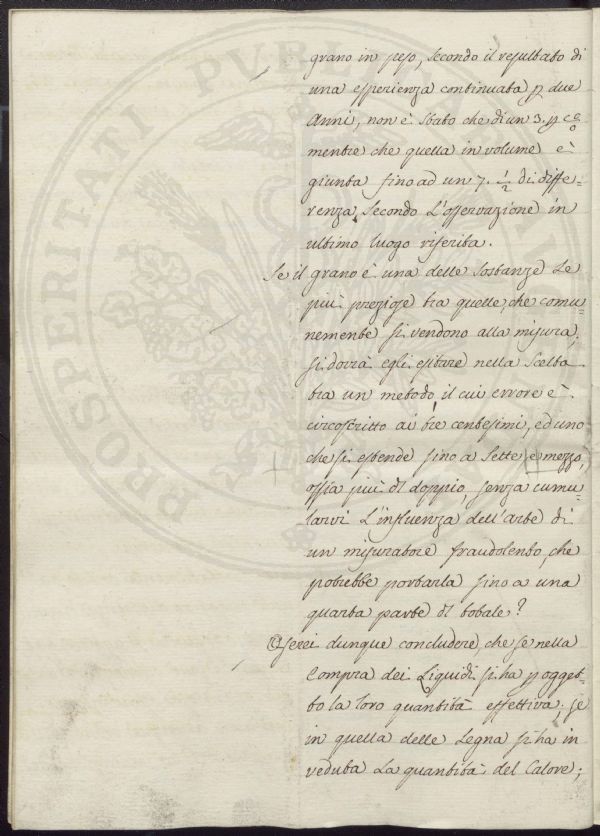 grano in peso, secondo il resultato di
una esperienza continuata p due
Anni, non è stato che di un 3. p c.o
mentre che quella in volume è
giunta fino ad un 7. 1/2 di diffe-
renza, secondo l'osservazione in
ultimo luogo riferita.
Se il grano è una delle sostanze le
più preziose tra quelle, che comu-
nemente si vendono alla misura,
si dovrà egli esitare nella scelta
tra un metodo, il cui errore è
circoscritto ai tre centesimi, ed uno
che si estende fino a sette e mezzo,
ossia più dl doppio, senza cumu-
larvi l'influenza dell'arte di
un misuratore fraudolento, che
potrebbe portarla fino a una
quarta parte dl totale?
Oserei dunque concludere, che se nella
Compra dei Liquidi si ha p ogget-
to la loro quantità effettiva; se
in quella delle Legna si ha in
veduta la quantità del Calore;
PROSPERITATI PVBLICAE